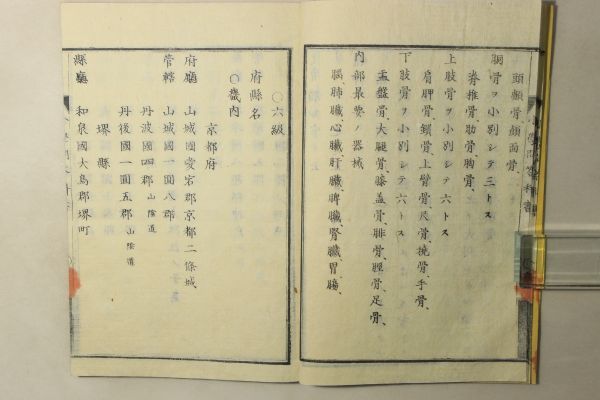 頭顱骨、顔面骨、
胴骨ヲ小別シテ三トス
脊椎骨、肋骨、胸骨、
上肢骨ヲ小別シテ六トス
肩胛骨、鎖骨、上臂骨、尺骨、撓骨、手骨、
下肢骨ヲ小別シテ六トス
盂盤骨、大腿骨、膝盖骨、腓骨、脛骨、足骨、
内部最要ノ器械
腦、肺臓、心臓、肝臓、脾臓、腎臓、胃、腸、
○六級
府縣名
○畿内
京都府
府廳 山城國愛宕郡京都二條城、
管轄 山城國一圓八郡
丹波國四郡 山陰道
丹後國一圓五郡 山陰道
堺縣
縣廳 和泉國大鳥郡堺町